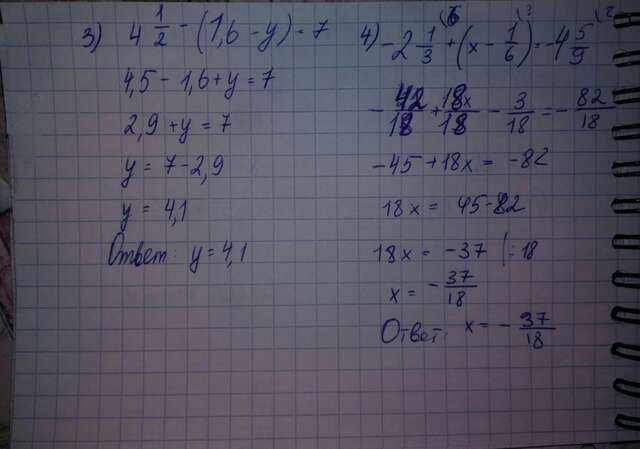 3) 4 1/2 - (1,6 - y) = 7
4,5 - 1,6 + y = 7
2,9 + y = 7
y = 7 - 2,9
y = 4,1
Ответ: y = 4,1
4) -2 1/3 + (x - 1/6) = -4 5/9
-42/18 + 18x/18 - 3/18 = -82/18
-45 + 18x = -82
18x = 45 - 82
18x = -37 |: 18
x = -37/18
Ответ: x = -37/18